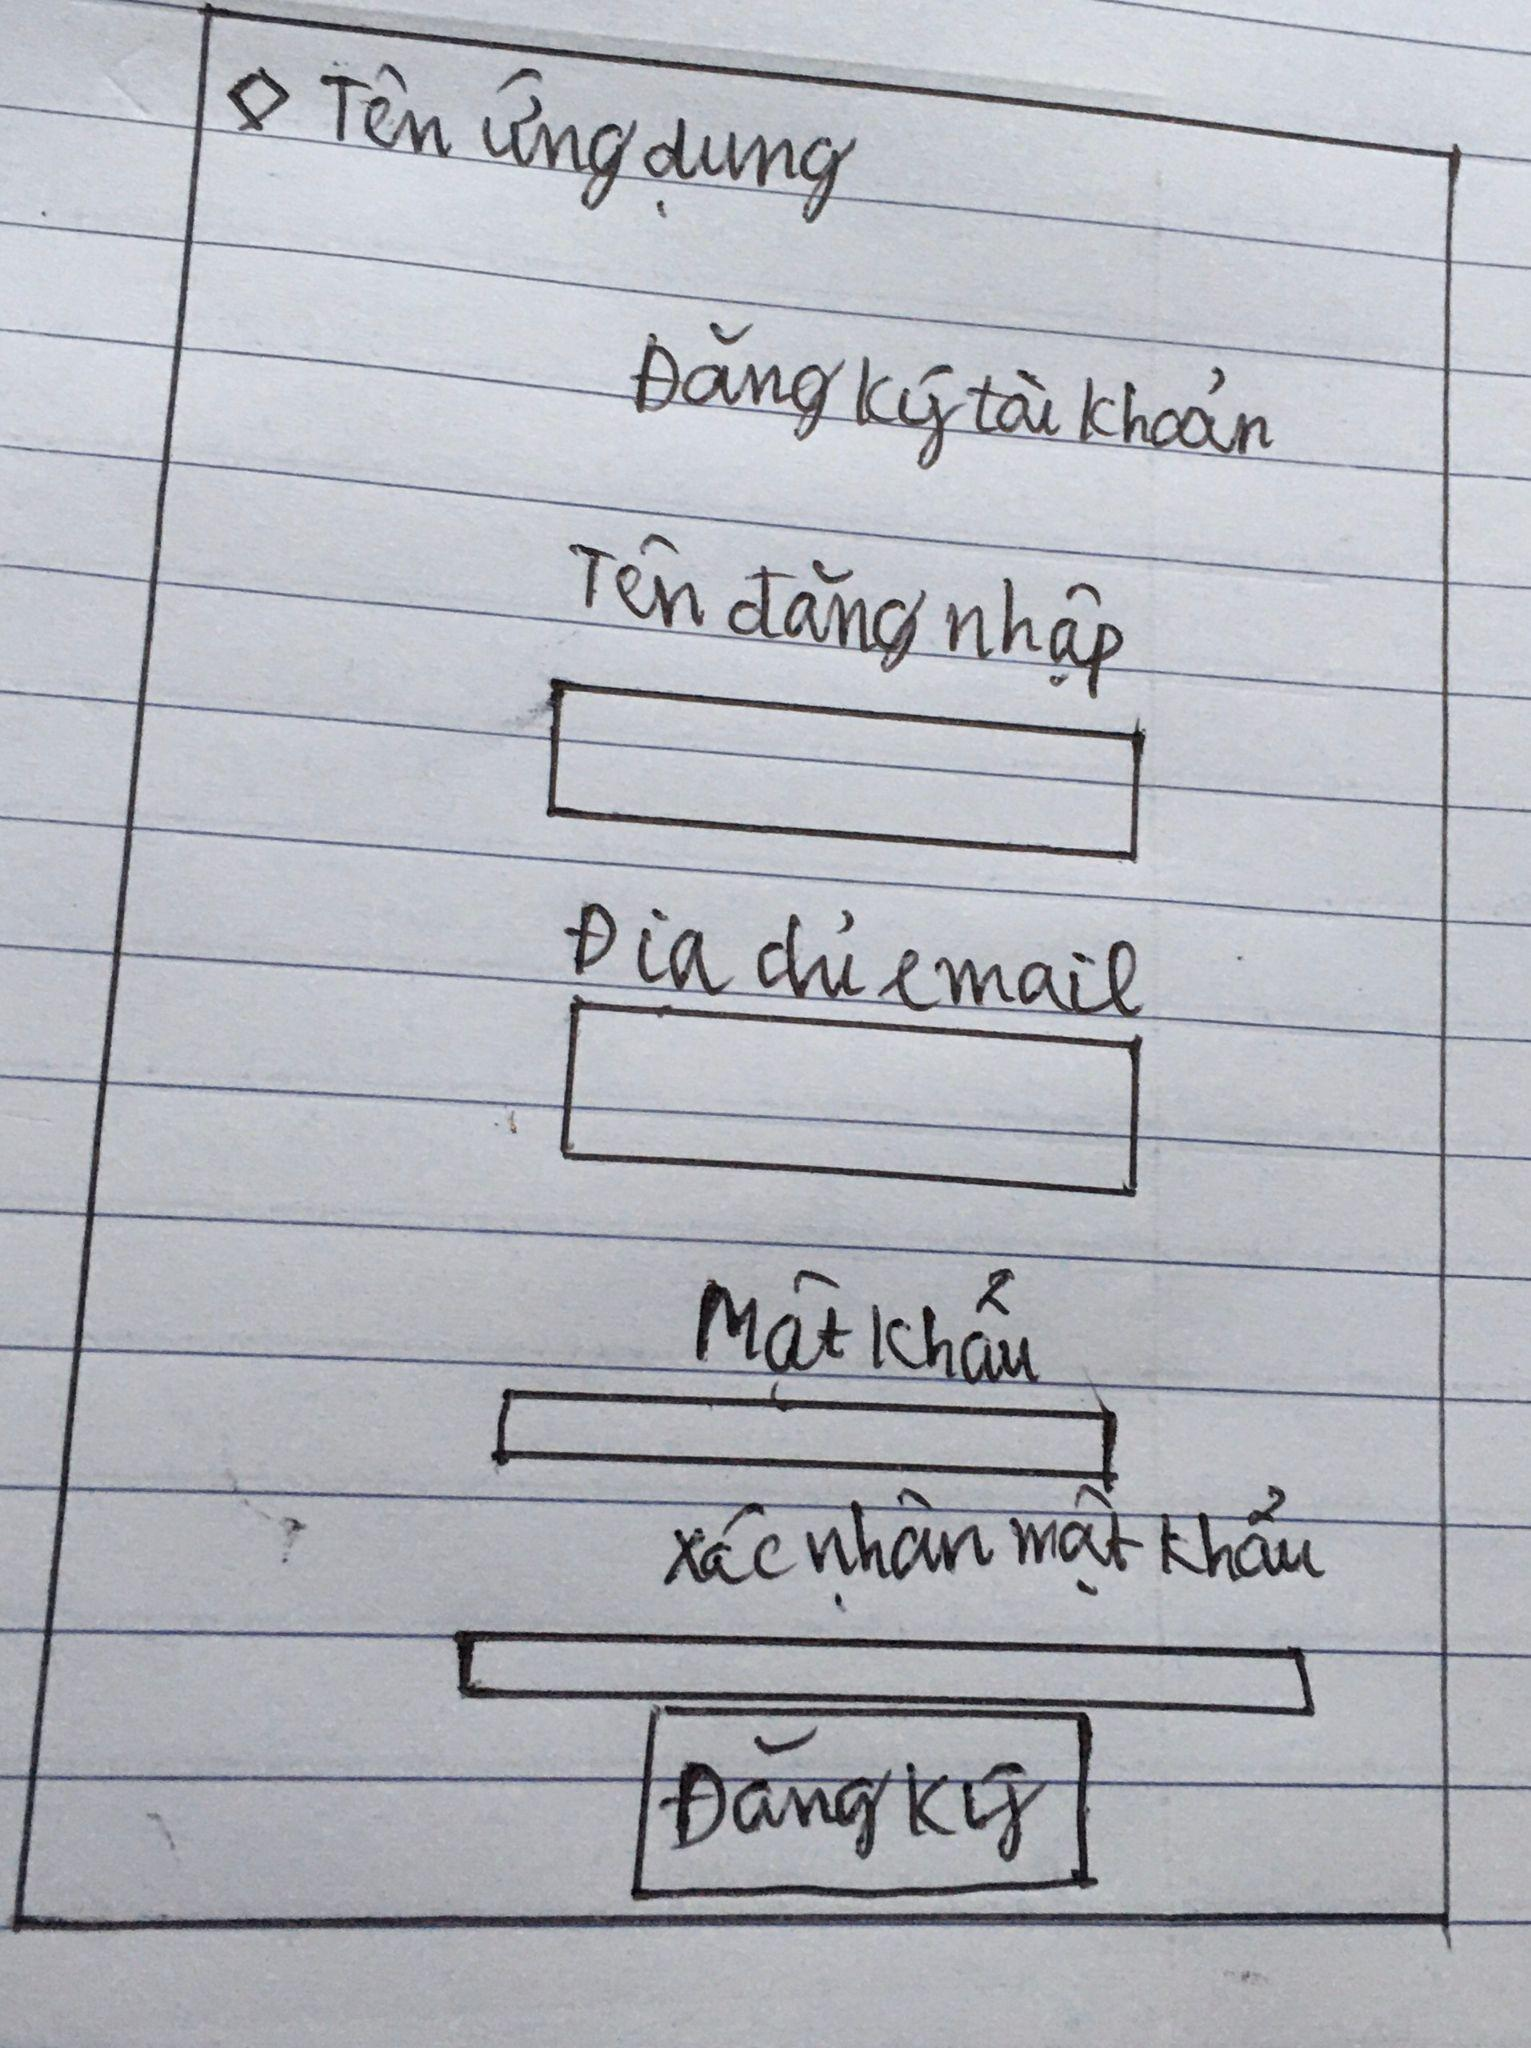 Tên ứng dụng
Đăng ký tài khoản
Tên đăng nhập
Đia chỉ email
Mật khẩu
Xác nhận mật khẩu
Đăng ký